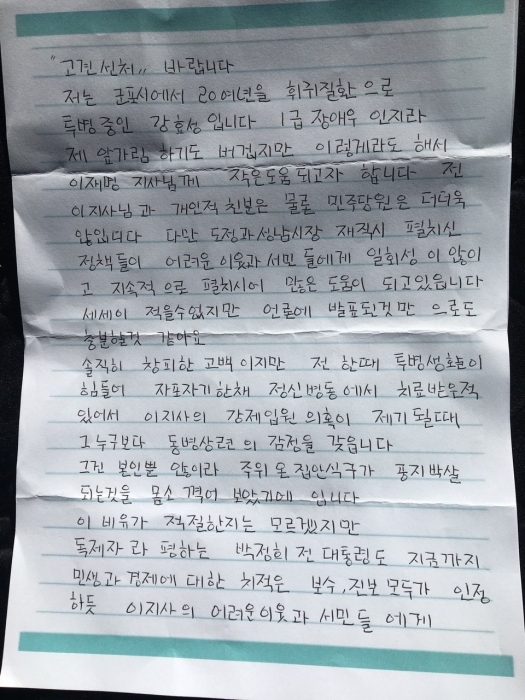 "고견선처,, 바랍니다
저는 군포시에서 20여년을 휘귀질환 으로
투병중인 강효성 입니다 1급 장애우 인지라
제 앞가림 하기도 버겁지만 이렇게라도 해서
이재명 지사님께 작은도움 되고자 합니다 전
이지사님과 개인적친분은 물론 민주당원은 더더욱
않입니다 다만 도정과성남시장 재직시 펼치신
정책들이 어려운 이웃과 서민 들에게 일회성 이 않이
고 지속적 으로 펼치시어 많은 도움이 되고있읍니다
세세이 적을수없지만 언론에 발표된것만 으로도
충분할것 같아요
솔직히 창피한 고백 이지만 전 한때 투병생활이
힘들어 자포자기한채 정신병동 에서 치료받은적
있어서 이지사의 강제입원 의혹이 제기 될때
그누구보다 동병상련 의 감정을 갖읍니다
그건 본인뿐 않이라 주위 온 집안식구가 풍지박살
되는것을 몸소 격어 보았기에 입니다
이 비유가 적절한지는 모르겠지만
독제자 라 평하는 박정희 전 대통령도 지금까지
민생과 경제에 대한 치적은 보수, 진보 모두가 인정
하듯 이지사의 어려운이웃과 서민들 에게